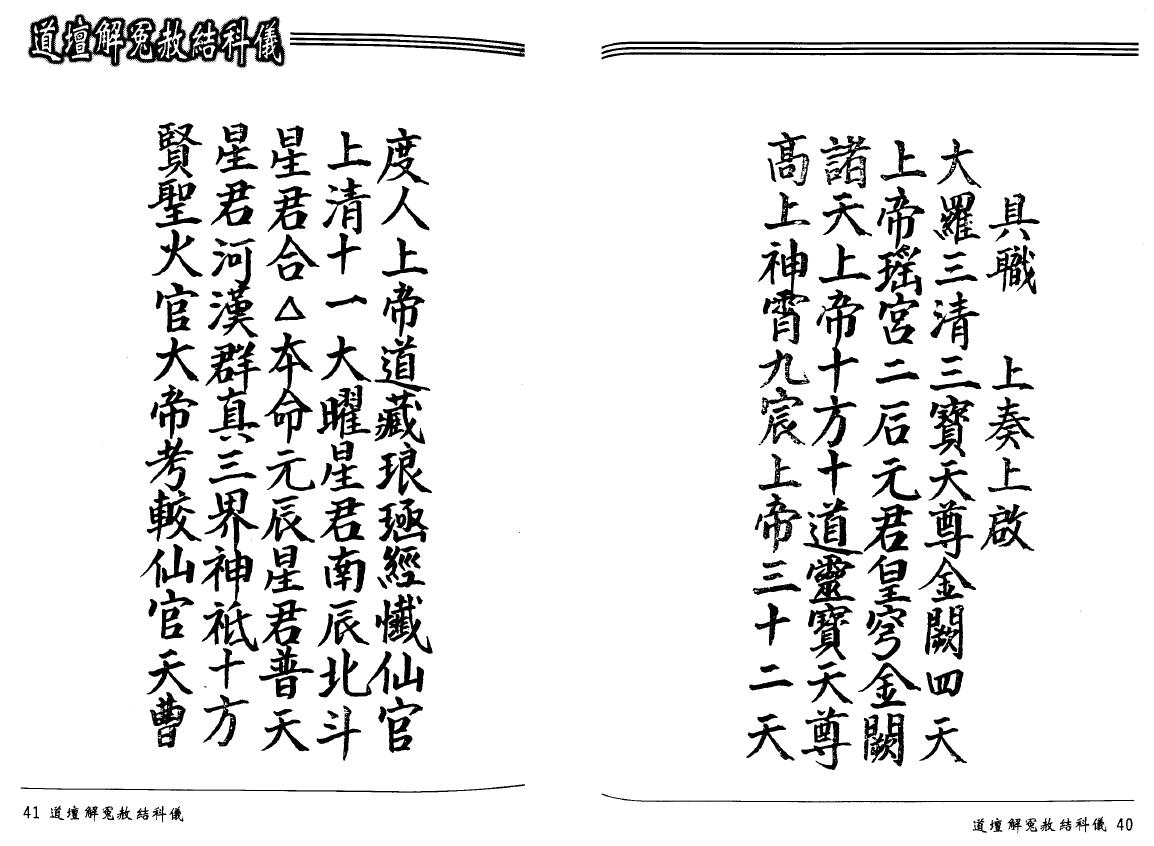 道壇解冤赦結科儀
具職 上奏上啟
大羅三清三寶天尊金闕四天
上帝瑤宮二后元君皇穹金闕
諸天上帝十方十道靈寶天尊
高上神霄九宸上帝三十二天
道壇解冤赦結科儀 40
度人上帝道藏琅函經懺仙官
上清十一大曜星君南辰北斗
星君合△本命元辰星君普天
星君河漢群真三界神祇十方
賢聖火官大帝考較仙官天曹
41 道壇解冤赦結科儀